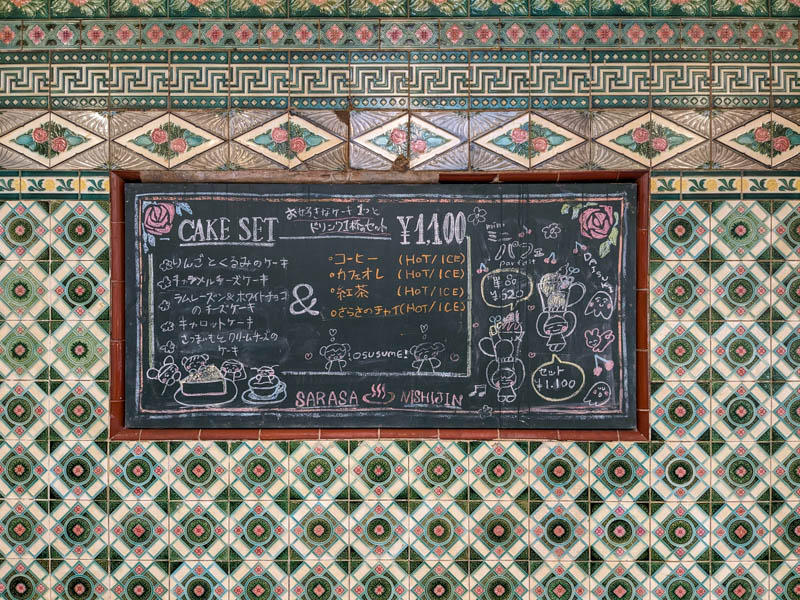 CAKE SET
お好きなケーキ1つと
ドリンク1杯のセット
¥1,100
りんごとくるみのケーキ
キャラメルチーズケーキ
ラムレーズン&ホワイトチョコ
のチーズケーキ
キャロットケーキ
さつまいもとクリームチーズの
ケーキ
&
コーヒー (HOT/ICE)
カフェオレ (HOT/ICE)
紅茶 (HOT/ICE)
さらさのチャイ (HOT/ICE)
OSUSUME!
SARASA NISHIJIN
mini
ミニ
パフェ
parfait
¥520
セット
¥1,100
OSUSUME